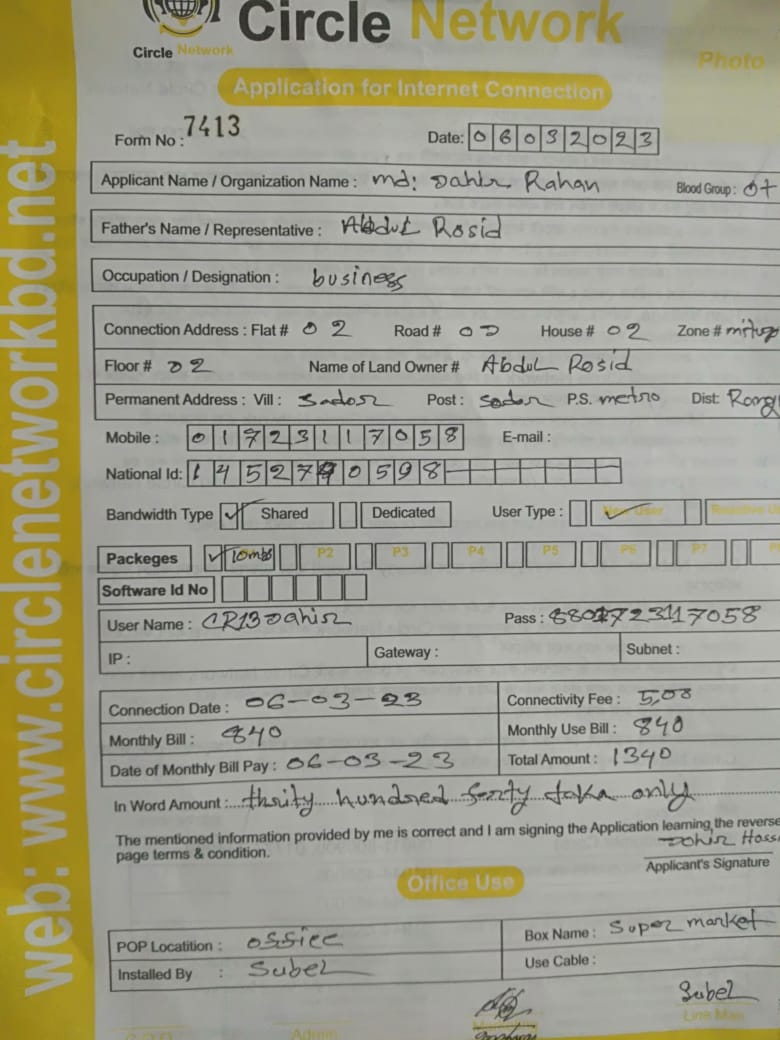 Circle Network
Circle Network
Photo
Application for Internet Connection
Form No : 7413
Date: 06032023
Applicant Name / Organization Name : md: Dahir Rahan Blood Group : O+
Father's Name / Representative : Abdul Rosid
Occupation / Designation : business
Connection Address : Flat # 02 Road # 00 House # 02 Zone #
Floor # 02 Name of Land Owner # Abdul Rosid
Permanent Address : Vill : Sador Post : Sador P.S. metro Dist:
Mobile : 01723117058 E-mail :
National Id:
Bandwidth Type ✓ Shared Dedicated User Type : ✓ New User
Packeges ✓ 10mbs P2 P3 P4 P5 P6 P7
Software Id No
User Name : CR13Dahir Pass : 8801723117058
IP : Gateway : Subnet :
Connection Date : 06-03-23 Connectivity Fee : 500
Monthly Bill : 840 Monthly Use Bill : 840
Date of Monthly Bill Pay : 06-03-23 Total Amount : 1340
In Word Amount : thrity hundred forty taka only
The mentioned information provided by me is correct and I am signing the Application learning, the reverse
page terms & condition.
Applicant's Signature
Office Use
POP Locatition : ossice Box Name : Super market
Installed By : Subel Use Cable :
Subel
Admin Line Man
web: www.circlenetworkbd.net